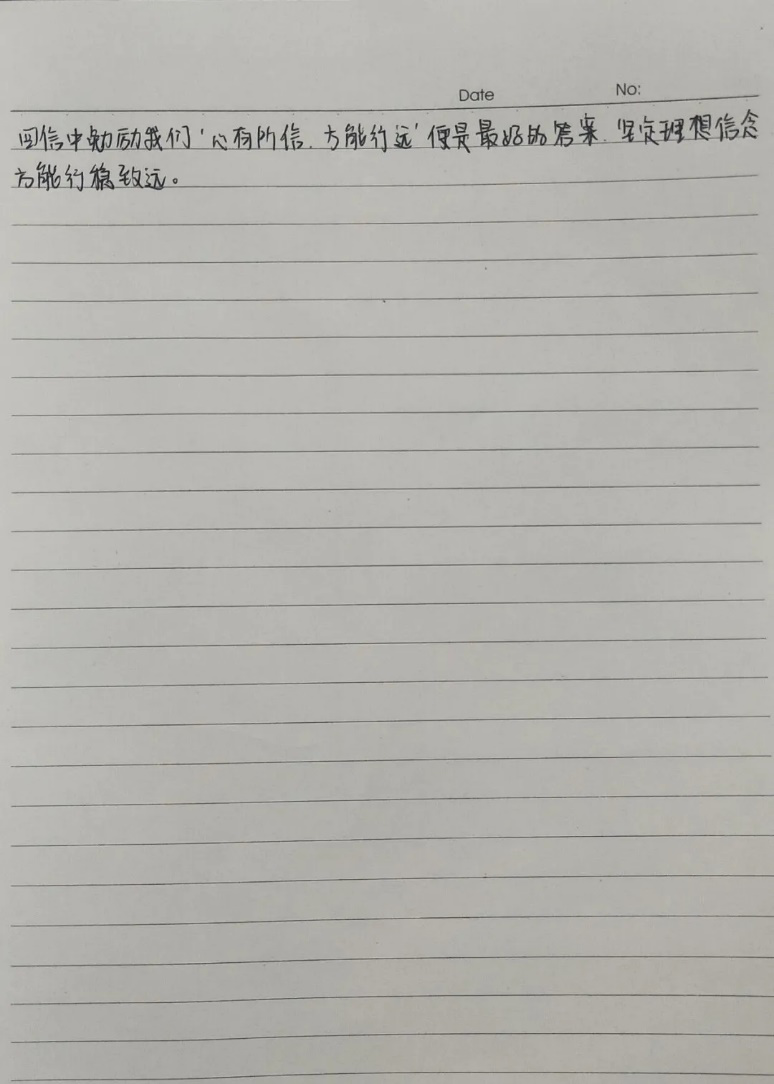 Date No:
回信中勉励我们‘心有所信，方能行远’便是最好的答案，坚定理想信念
方能行稳致远。